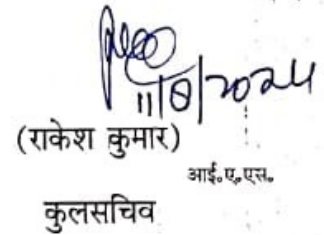 11/8/2024
(राकेश कुमार)
आई.ए.एस.
कुलसचिव